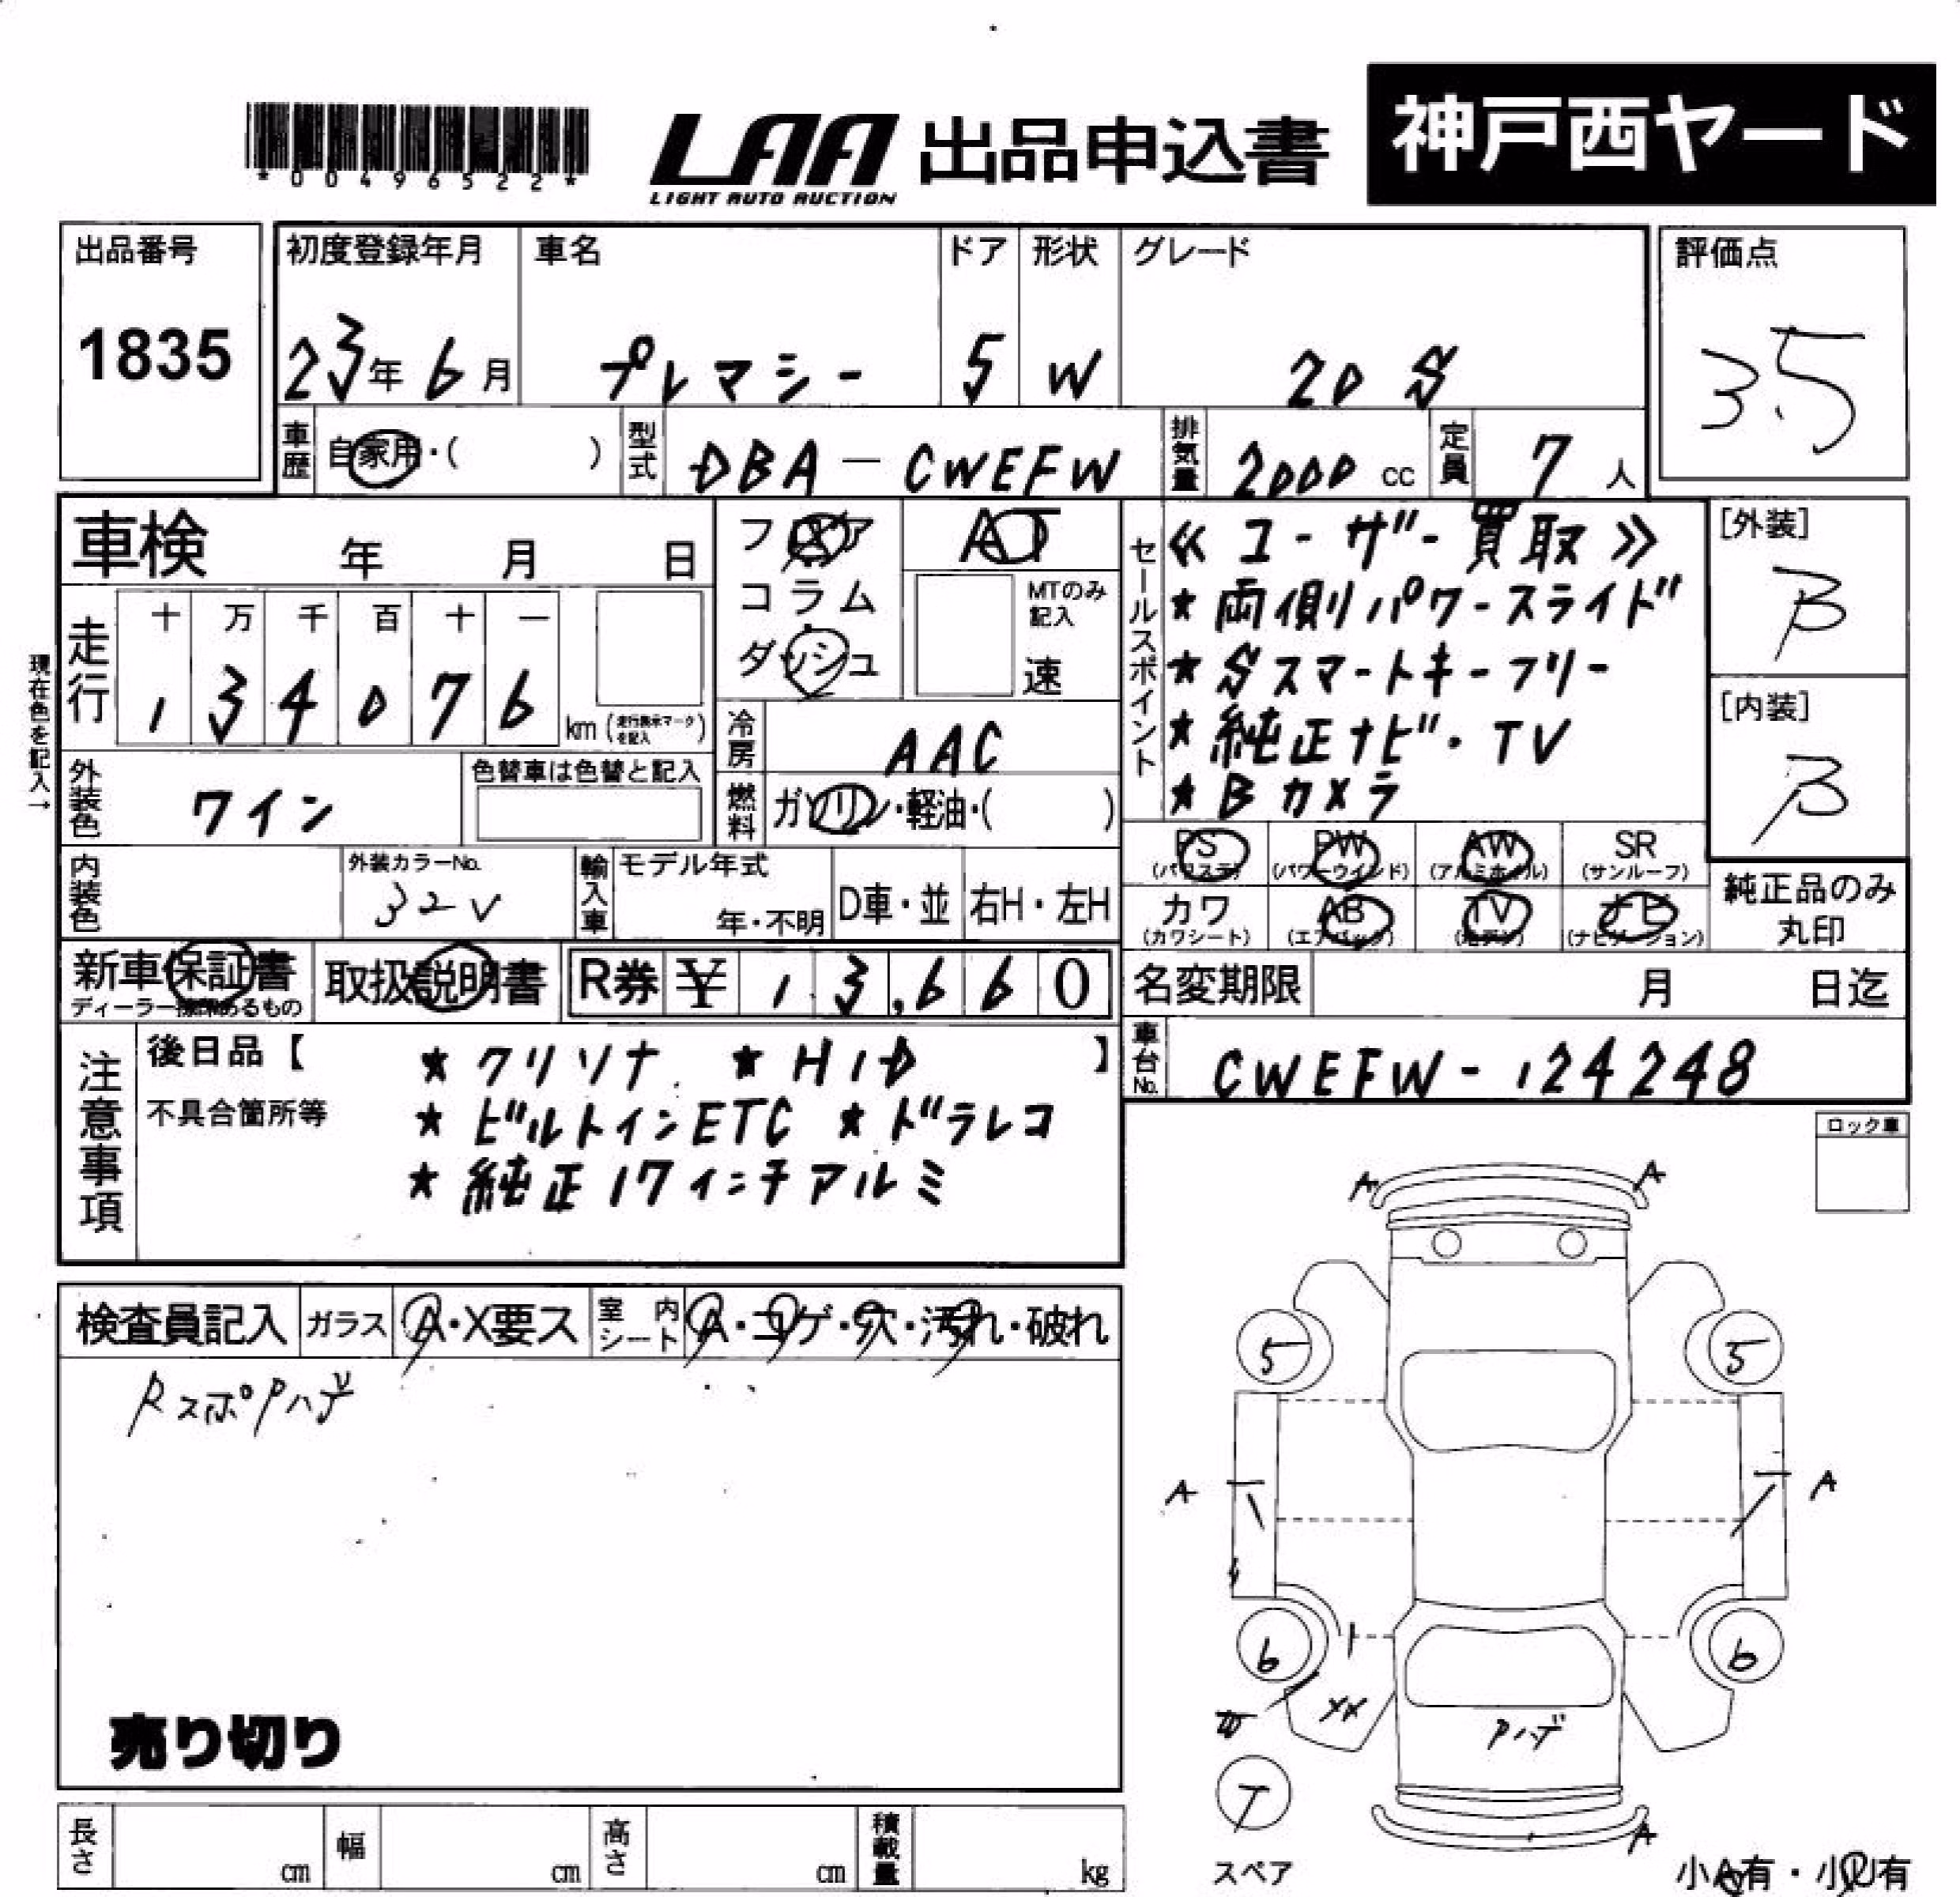 *00496522*
LAA 出品申込書 神戸西ヤード
LIGHT AUTO AUCTION
出品番号 初度登録年月 車名 ドア 形状 グレード 評価点
1835 23年6月 プレマシー 5 W 20S 3.5
車歴 自家用・( ) 型式 DBA-CWEFW 排気量 2000cc 定員 7人
車検 年 月 日
フロア
コラム
ダッシュ
AT
MTのみ記入
速
現在色を記入→
走行 十 万 千 百 十 一
1 3 4 0 7 6 km (走行表示マークを記入)
冷房 AAC
燃料 ガソリン・軽油・( )
外装色 ワイン 色替車は色替と記入
内装色 外装カラーNo. 32V
輸入車 モデル年式 年・不明 D車・並 右H・左H
セールスポイント
≪ユーザー買取≫
★両側パワースライド
★Sスマートキーフリー
★純正ナビ・TV
★Bカメラ
[外装]
B
[内装]
B
PS PW AW SR
(パワステ) (パワーウインド) (アルミホイル) (サンルーフ)
カワ AB TV ナビ
(カワシート) (エアバック) (地デジ) (ナビゲーション)
純正品のみ
丸印
新車保証書 取扱説明書 R券 ¥ 13,660
ディーラー捺印あるもの
名変期限 月 日迄
車台No. CWEFW-124248
注意事項
後日品【 ★クリソナ ★HID 】
不具合箇所等 ★ビルトインETC ★ドラレコ
★純正17インチアルミ
ロック車
検査員記入 ガラス A・X要ス 室内シート A・コゲ・穴・汚れ・破れ
RスポPハゲ
売り切り
A A
5 5
A A
6 6
XX
Pハゲ
T
A
スペア
小A有・小U有
長さ cm 幅 cm 高さ cm 積載量 kg